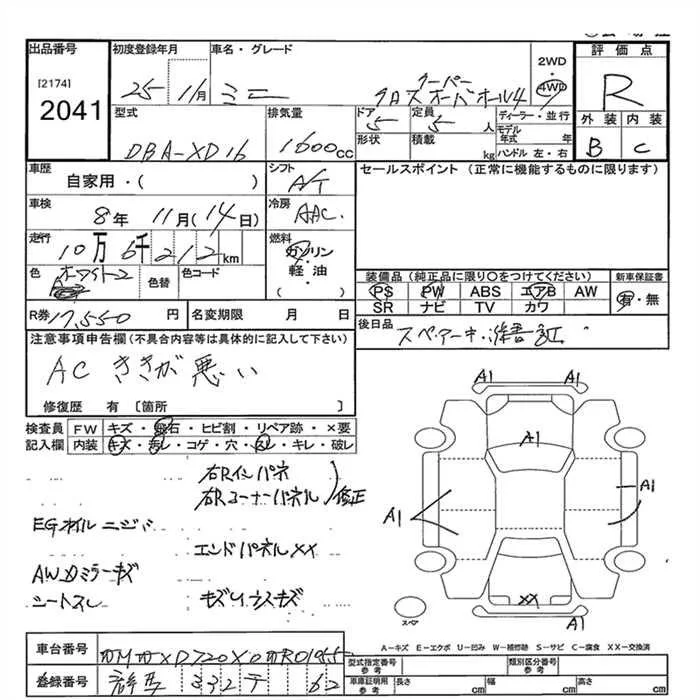 出品番号 初度登録年月 車名・グレード 評価点
[2174]
2041
25 11月 ミニ クーパー
クロスオーバーオール4
2WD・4WD
R
外装 内装
B C
型式 排気量 ドア 定員 ディーラー・並行
DBA-XD16 1600cc 5 5人 モデル年式 年
形状 積載 kg ハンドル 左・右
車歴 シフト セールスポイント(正常に機能するものに限ります)
自家用・( ) A/T
車検 冷房
8年 11月(14日) AAC
走行 燃料
10万 6千 212km ガソリン・軽油・( )
色 色替 色コード
ホワイト2
装備品(純正品に限り○をつけてください) 新車保証書
PS PW ABS エアB AW 有・無
SR ナビ TV カワ
R券 17,550円 名変期限 月 日
後日品
スペアーキ
注意事項申告欄(不具合内容等は具体的に記入して下さい)
AC ききが悪い
修復歴 有 [箇所 ]
検査員記入欄 FW キズ・飛石・ヒビ割・リペア跡・×要
内装 キズ・汚レ・コゲ・穴・スレ・キレ・破レ
右Rインパネ
右Rコーナーパネル 修正
EGオイルニジミ
エンドパネルXX
AWカミラーキズ
シートスレ
A1 A1
A1
A1
A1
XX
スペア
A-キズ E-エクボ U-凹み W-補修跡 S-サビ C-腐食 XX-交換済
車台番号 型式指定番号 参考 類別区分番号 参考
登録番号 車庫証明用 参考 長さ cm 幅 cm 高さ cm